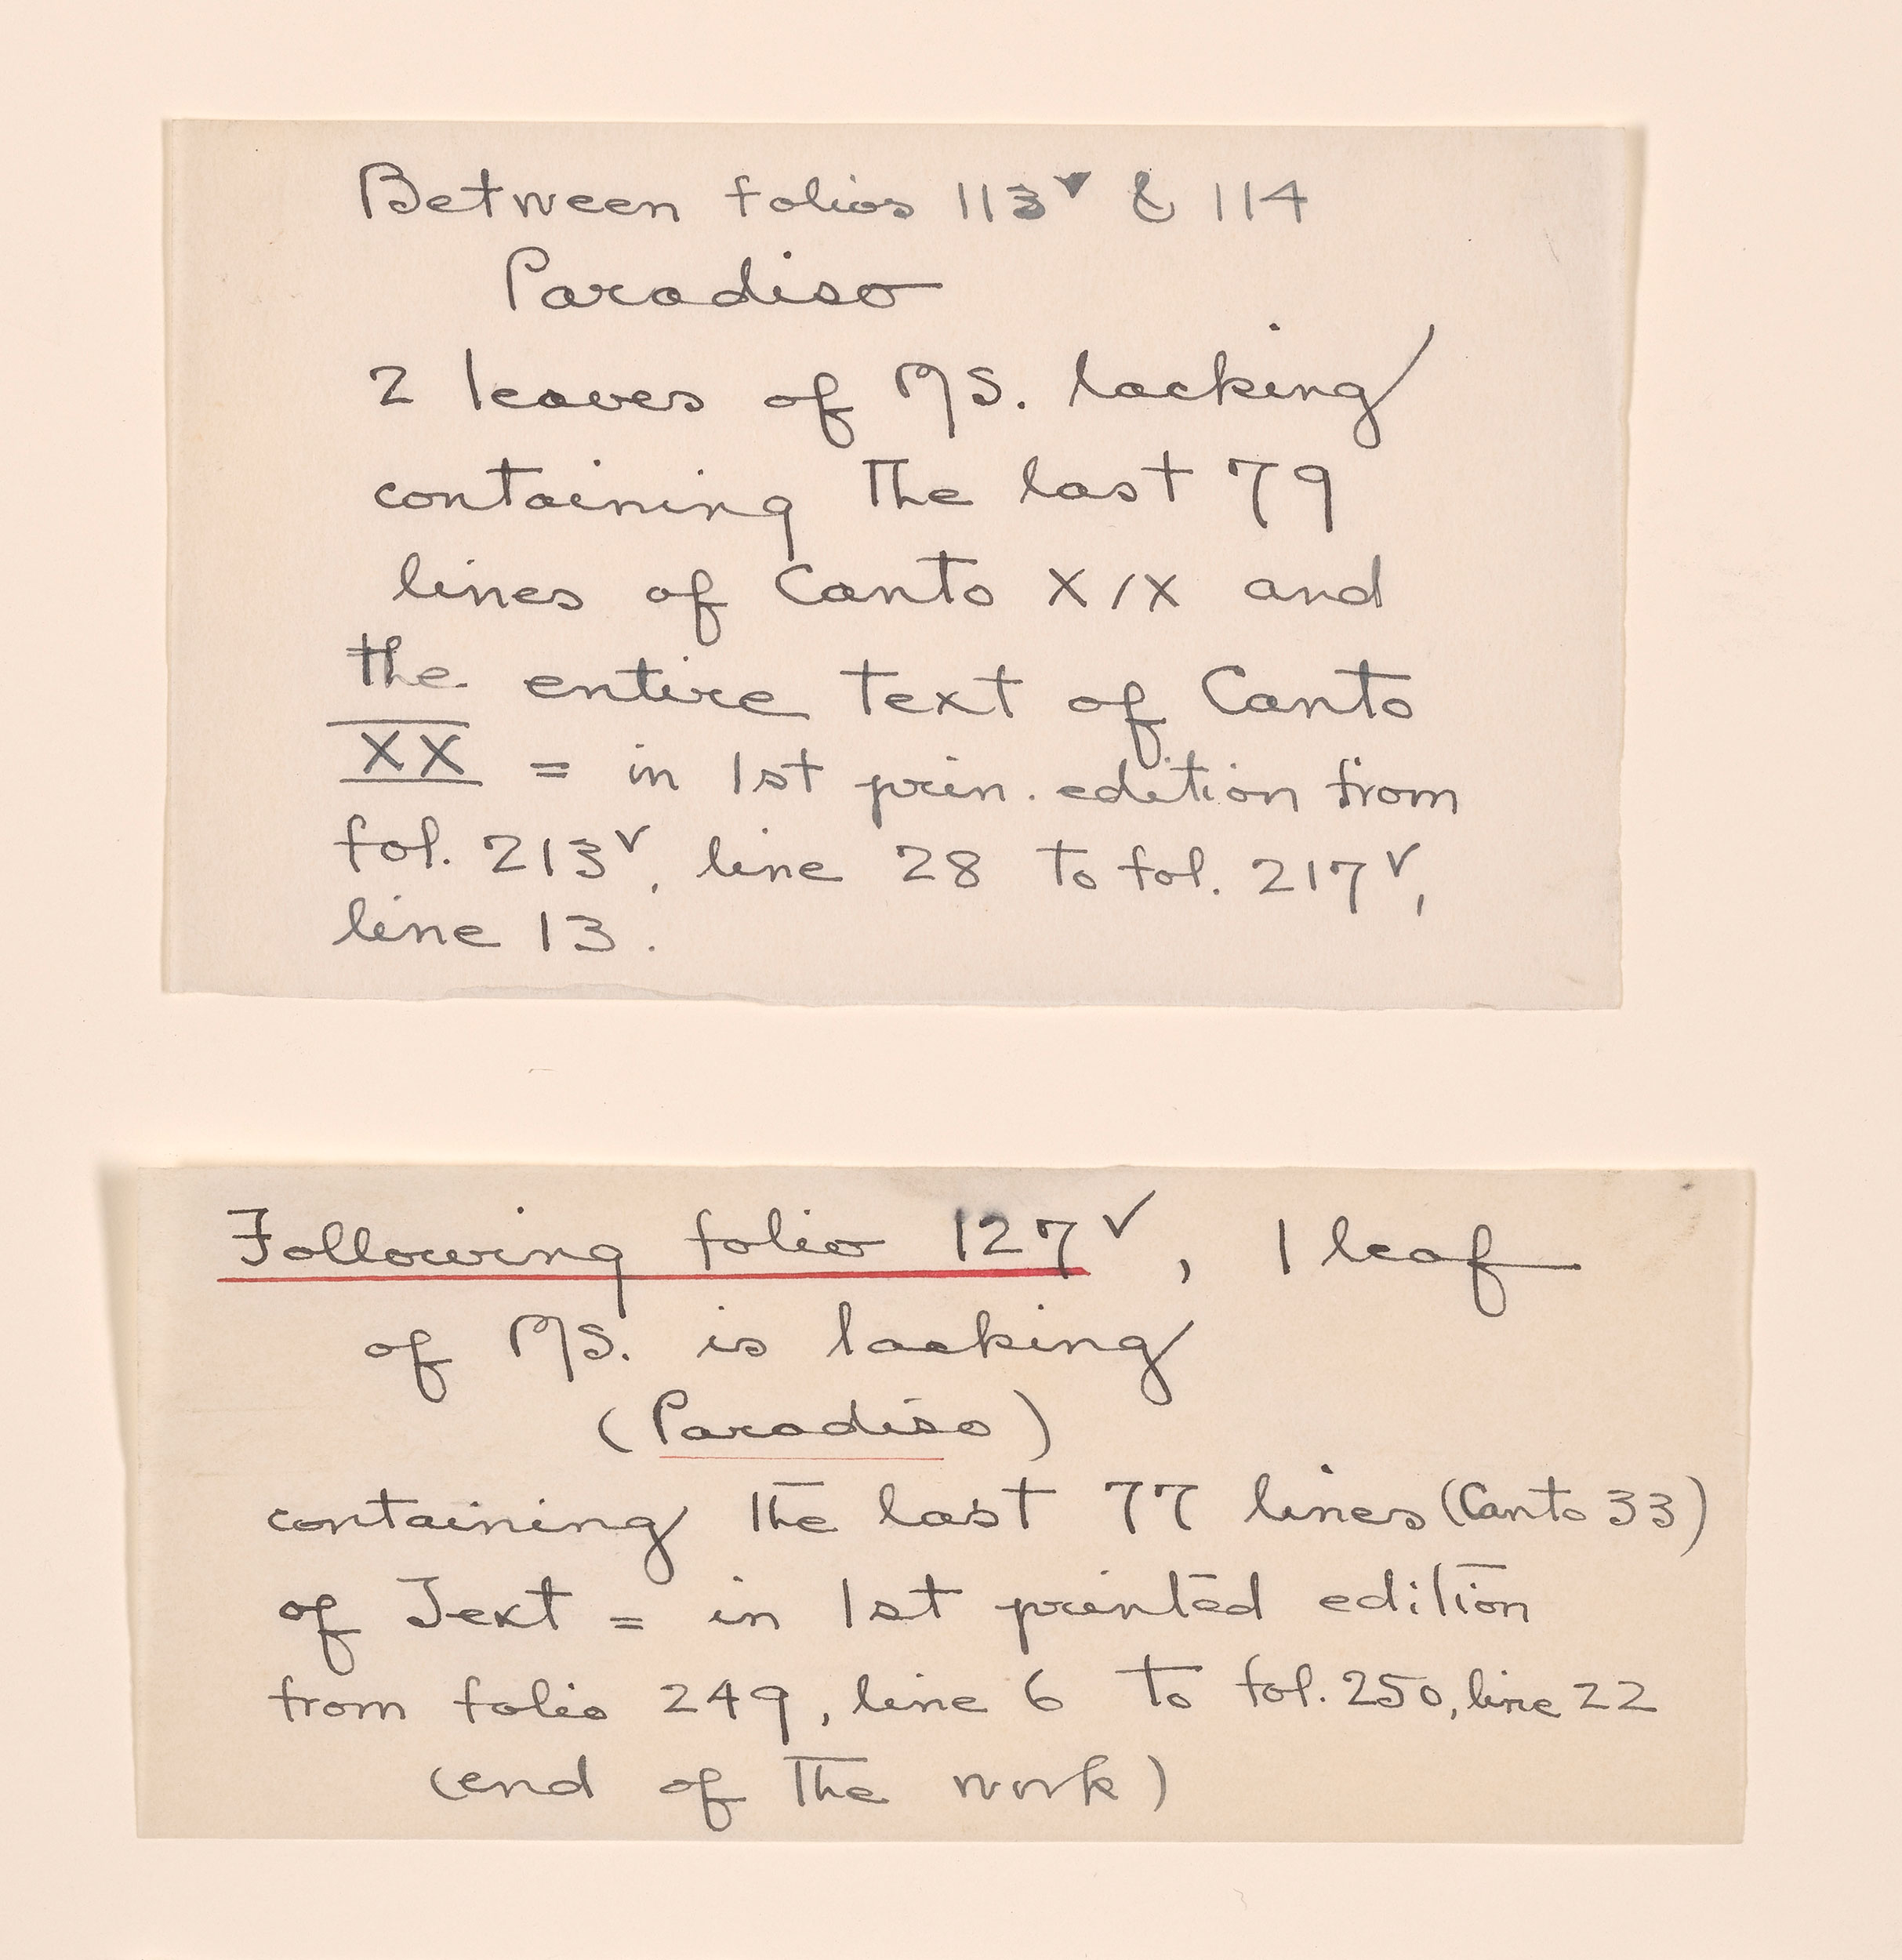 Between folios 113v & 114
Paradiso
2 leaves of MS. lacking
containing the last 79
lines of Canto XIX and
the entire text of Canto
XX = in 1st prin. edition from
fol. 213v, line 28 to fol. 217v,
line 13.
Following folio 127v, 1 leaf
of MS. is lacking
(Paradiso)
containing the last 77 lines (Canto 33)
of Text = in 1st printed edition
from folio 249, line 6 to fol. 250, line 22
(end of the work)